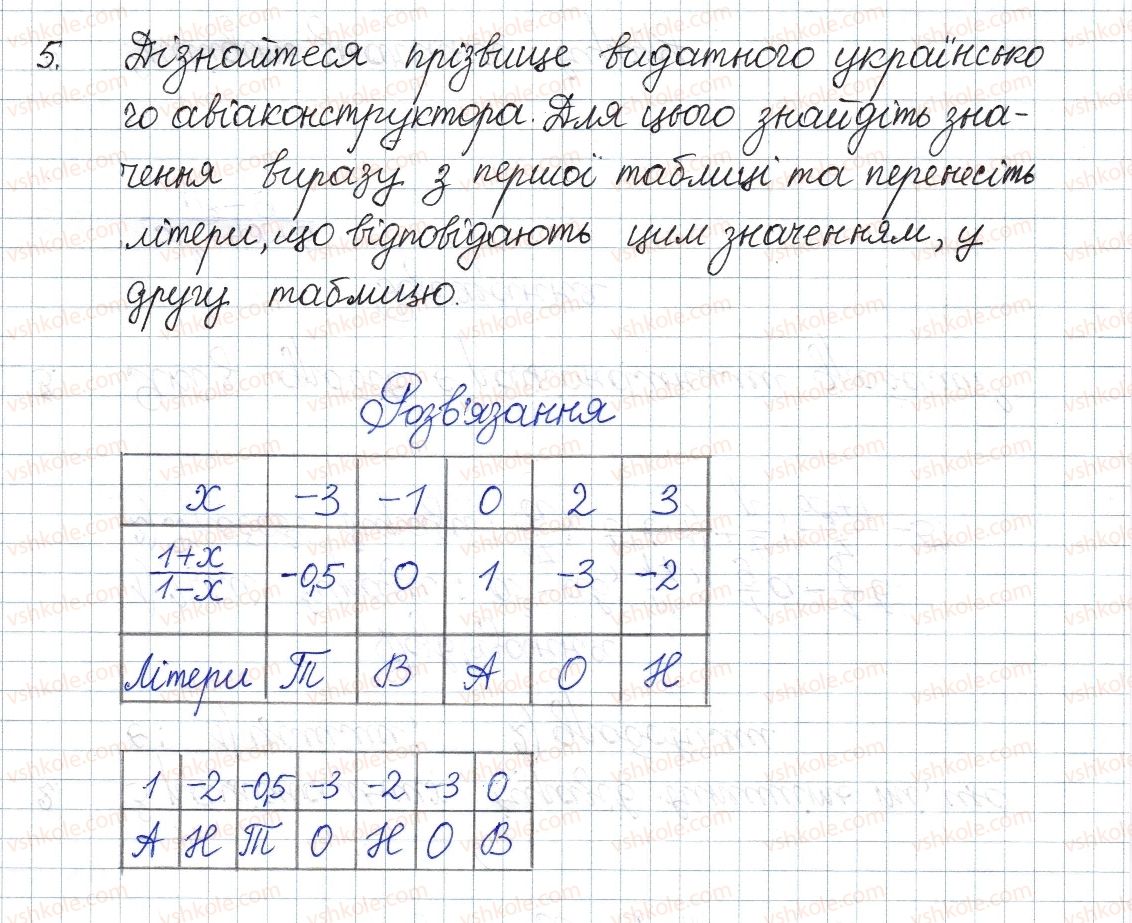 5. Дізнайтеся прізвище видатного українсько
го авіаконструктора. Для цього знайдіть зна-
чення виразу з першої таблиці та перенесіть
літери, що відповідають цим значенням, у
другу таблицю.
Розв'язання
x -3 -1 0 2 3
1+x
1-x -0,5 0 1 -3 -2
Літери Т В А О Н
1 -2 -0,5 -3 -2 -3 0
А Н Т О Н О В
vshkole.com